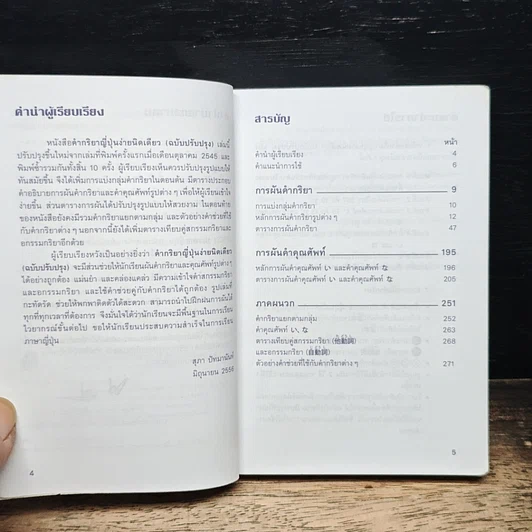 คำนำผู้เรียบเรียง
หนังสือคำกริยาญี่ปุ่นง่ายนิดเดียว (ฉบับปรับปรุง) เล่มนี้
ปรับปรุงขึ้นใหม่จากเล่มที่พิมพ์ครั้งแรกเมื่อเดือนตุลาคม 2545 และ
พิมพ์ซ้ำรวมกันทั้งสิ้น 10 ครั้ง ผู้เรียบเรียงเห็นควรปรับปรุงรูปแบบให้
ทันสมัยขึ้น จึงได้เพิ่มการแบ่งกลุ่มคำกริยาในตอนต้น มีตารางประกอบ
คำอธิบายการผันคำกริยาและคำคุณศัพท์รูปต่าง ๆ เพื่อให้ผู้เรียนเข้าใจ
ง่ายขึ้น ส่วนตารางการผันได้ปรับปรุงรูปแบบให้สวยงาม ในตอนท้าย
ของหนังสือยังคงมีรวมคำกริยาแยกตามกลุ่ม และตัวอย่างคำช่วยที่ใช้
กับคำกริยาต่าง ๆ นอกจากนี้ยังได้เพิ่มตารางเทียบคู่สกรรมกริยาและ
อกรรมกริยาอีกด้วย
ผู้เรียบเรียงหวังเป็นอย่างยิ่งว่า คำกริยาญี่ปุ่นง่ายนิดเดียว
(ฉบับปรับปรุง) จะมีส่วนช่วยให้นักเรียนผันคำกริยาและคุณศัพท์รูปต่าง ๆ
ได้อย่างถูกต้อง แม่นยำ และคล่องแคล่ว มีความเข้าใจคำสกรรมกริยา
และอกรรมกริยา และใช้คำช่วยคู่กับคำกริยาได้ถูกต้อง รูปเล่มที่
กะทัดรัด ช่วยให้พกพาติดตัวได้สะดวก สามารถนำไปฝึกฝนการผันได้
ทุกที่ทุกเวลาที่ต้องการ จึงมั่นใจได้ว่านักเรียนจะมีพื้นฐานในการเรียน
ไวยากรณ์ชั้นต่อไป ขอให้นักเรียนประสบความสำเร็จในการเรียน
ภาษาญี่ปุ่น
สุภา ปัทมานันท์
มิถุนายน 2556
4
สารบัญ
หน้า
คำนำผู้เรียบเรียง 4
คำแนะนำการใช้ 6
การผันคำกริยา 9
การแบ่งกลุ่มคำกริยา 10
หลักการผันคำกริยารูปต่าง ๆ 12
ตารางการผันคำกริยา 47
การผันคำคุณศัพท์ 195
หลักการผันคำคุณศัพท์ い และคำคุณศัพท์ な 196
ตารางการผันคำคุณศัพท์ い และคำคุณศัพท์ な 205
ภาคผนวก 251
คำกริยาแยกตามกลุ่ม 252
คำคุณศัพท์ い, な 263
ตารางเทียบคู่สกรรมกริยา (他動詞) 268
และอกรรมกริยา (自動詞)
ตัวอย่างคำช่วยที่ใช้กับคำกริยาต่าง ๆ 271
5